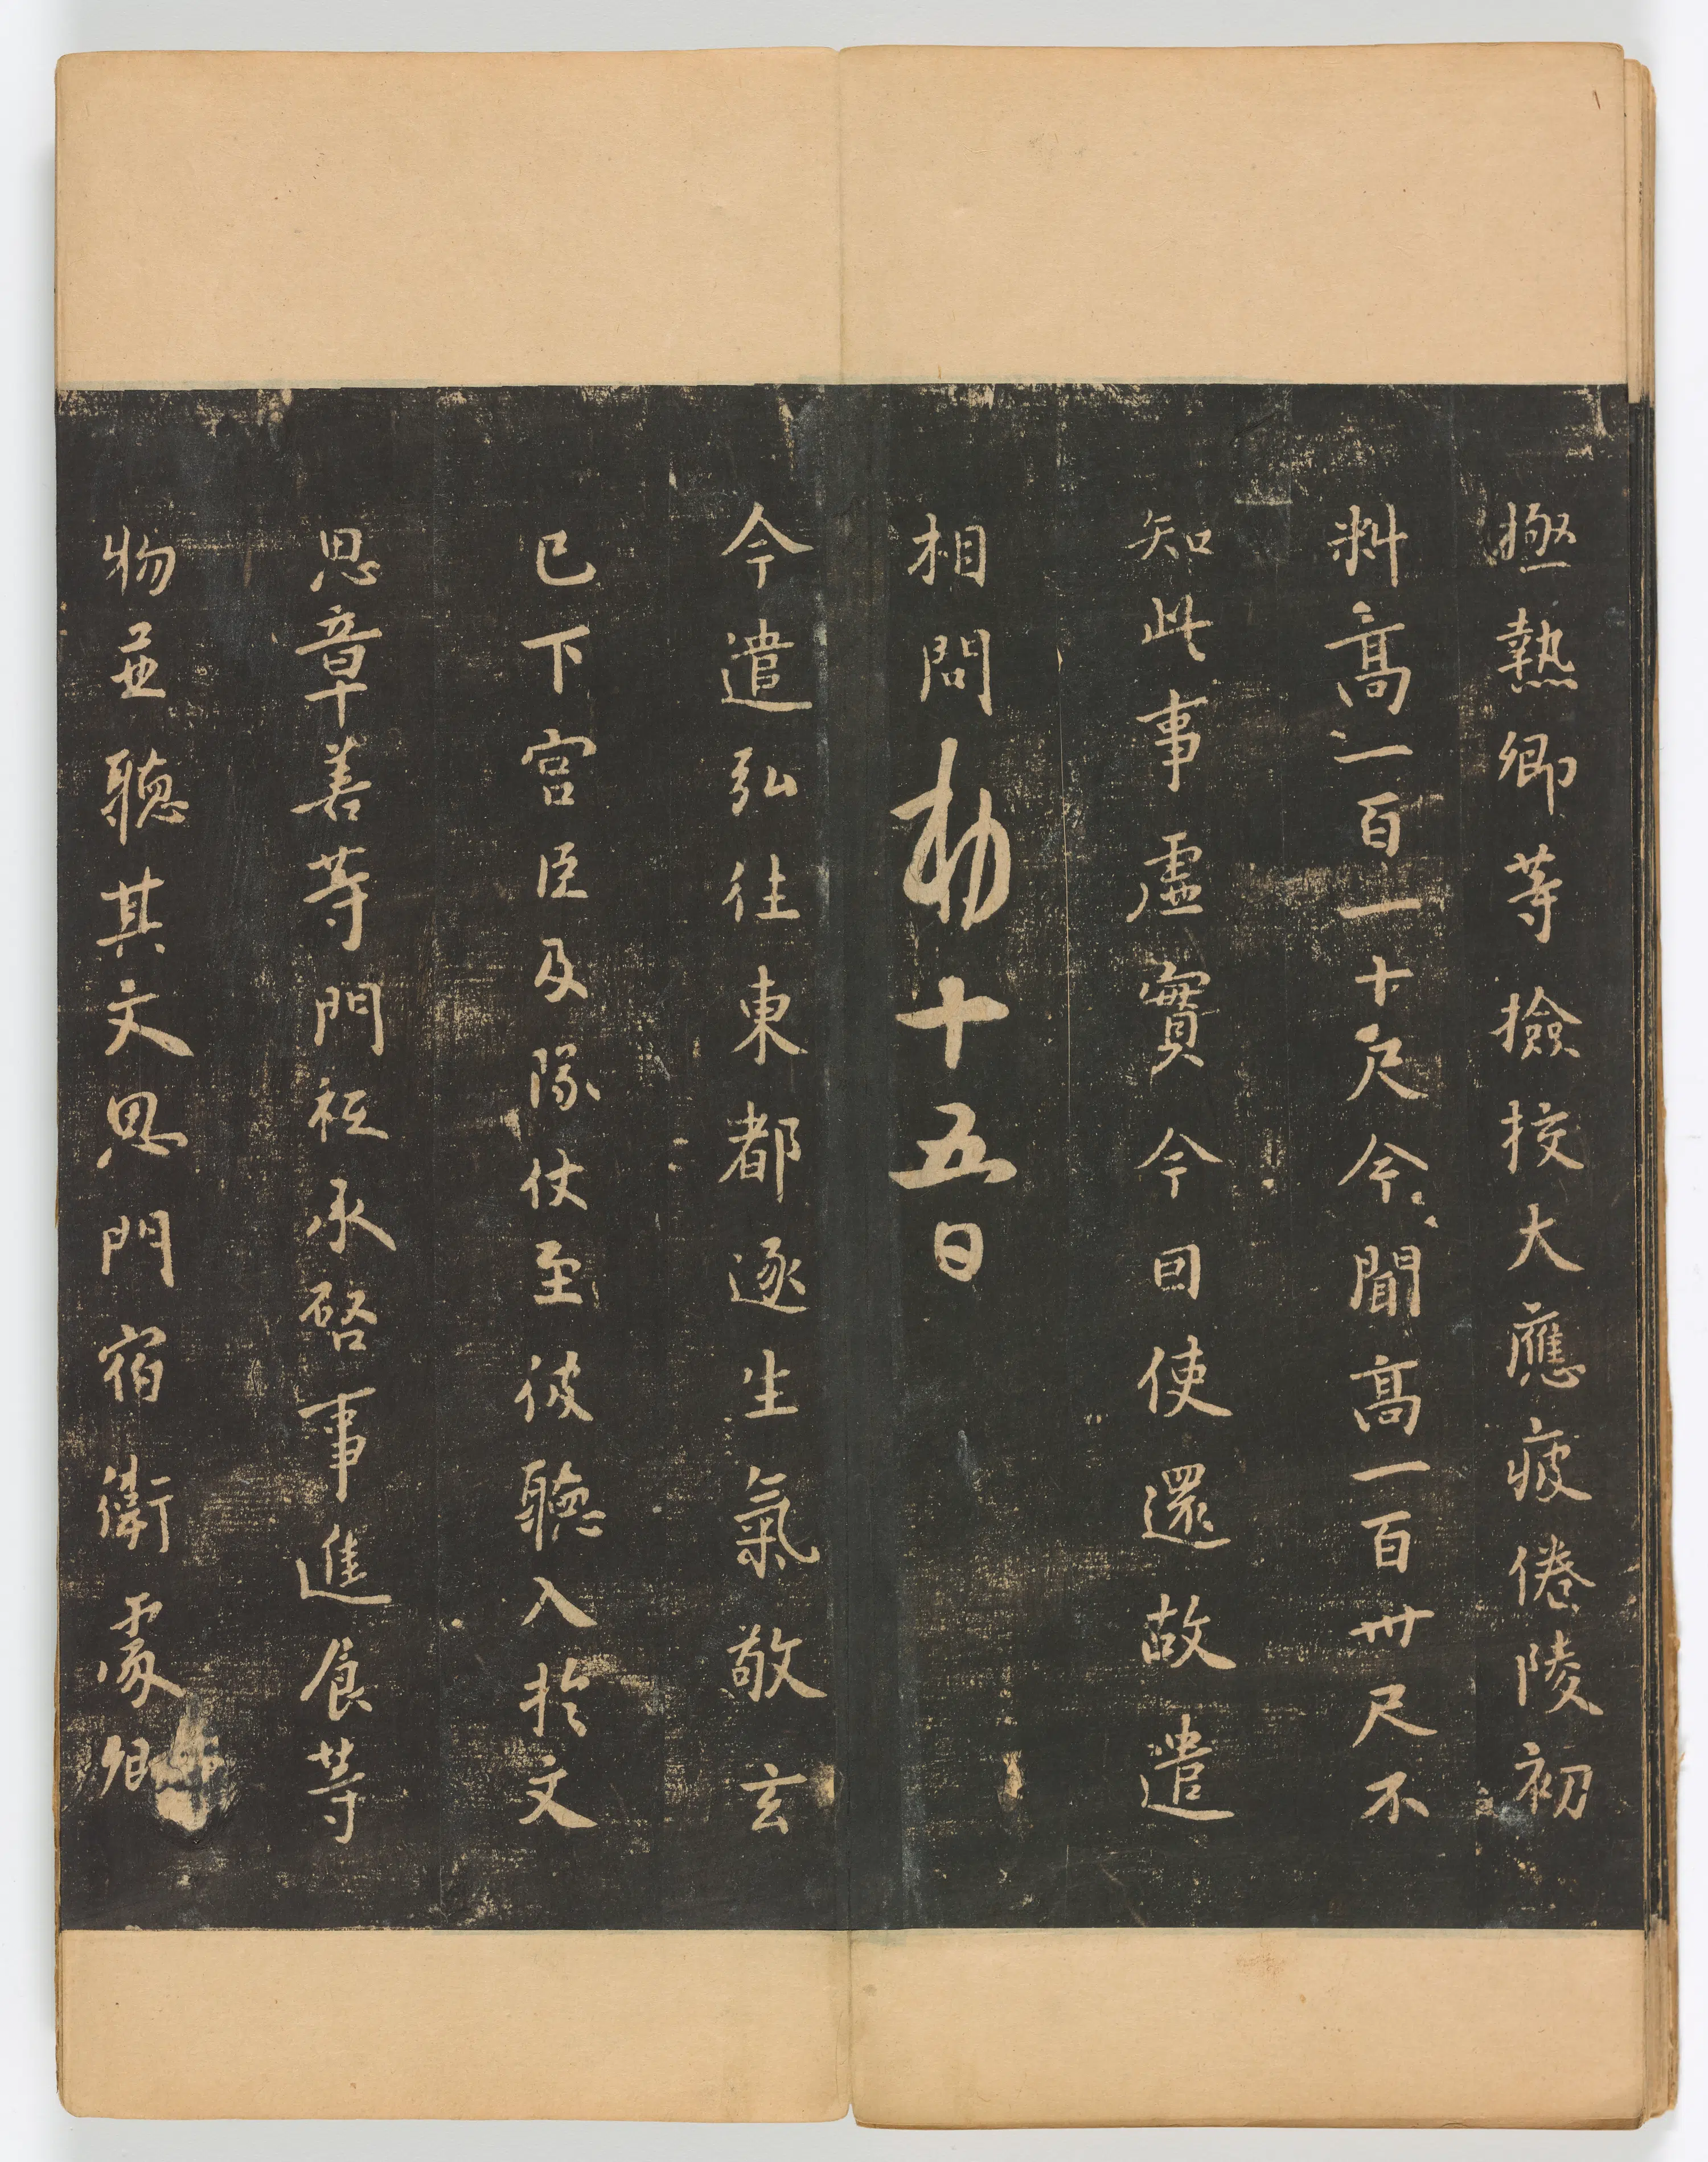 極熱卿等檢挍大應疲倦陵初
料高一百一十尺今聞高一百卅尺不
知此事虛實今因使還故遣
相問勅十五日
今遣弘往東都逐生氣敬玄
已下宮臣及隊仗至彼聽入於文
思章善等門祗承啓事進食等
物並聽其文思門宿衛處卿